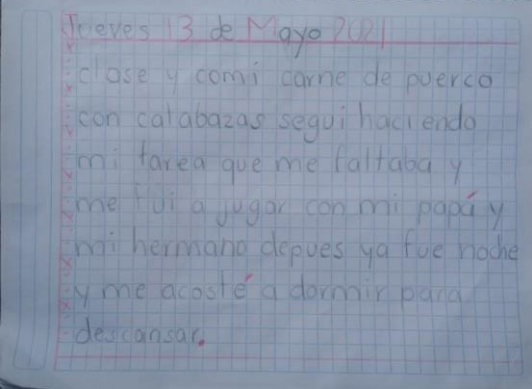 Jueves 13 de Mayo 2021
clase y comi carne de puerco
con calabazas segui haciendo
mi tarea que me faltaba y
me fui a jugar con mi papá y
mi hermano depues ya fue noche
y me acosté a dormir para
descansar.